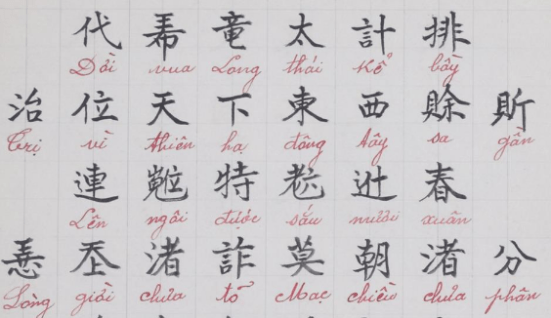 代 竜 太 計 排
Dời vua Long thái kể bày
治 位 天 下 東 西 賒 𧵆
Trị vì thiên hạ đông tây sa gần
連 特 春
Lên ngôi được sáu mươi xuân
渚 詐 莫 朝 渚 分
Lòng giời chửa tỏ Mạc chiều chửa phân